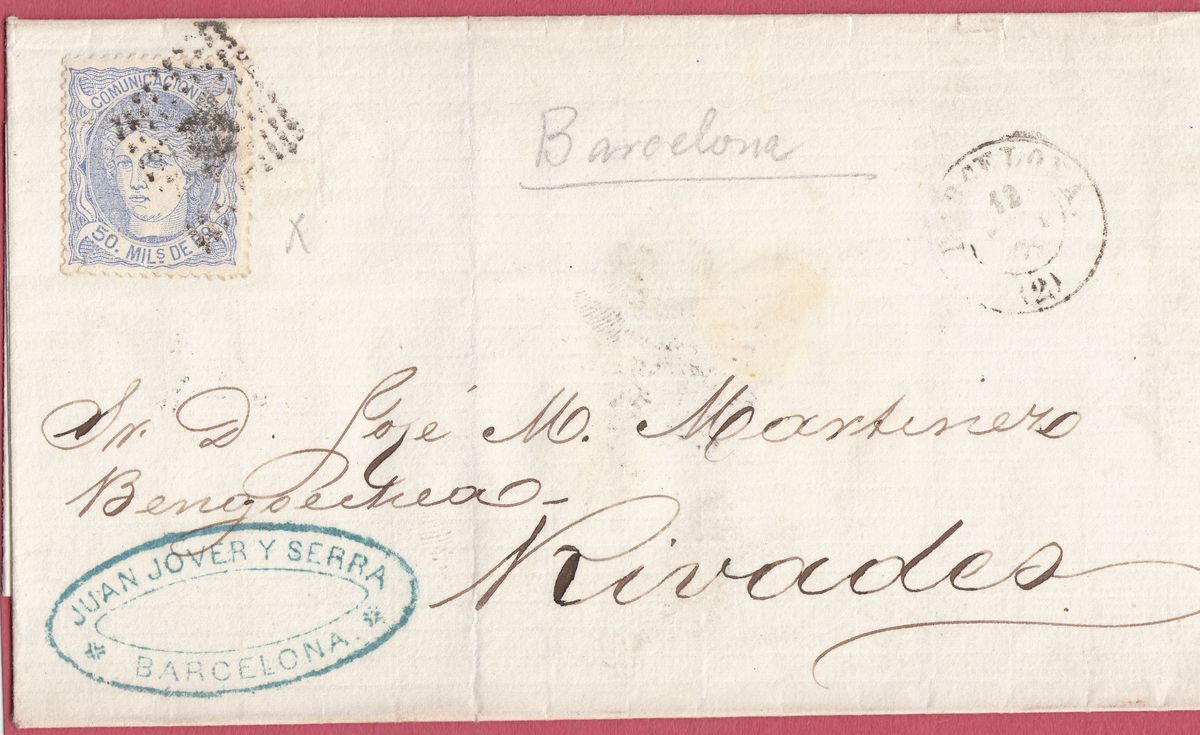 COMUNICACIONES
50. MILS DE
Barcelona
X
BARCELONA
12
(2)
Sr. D. José M. Martinez
Bengoechea-
Rivades
JUAN JOVER Y SERRA
BARCELONA.